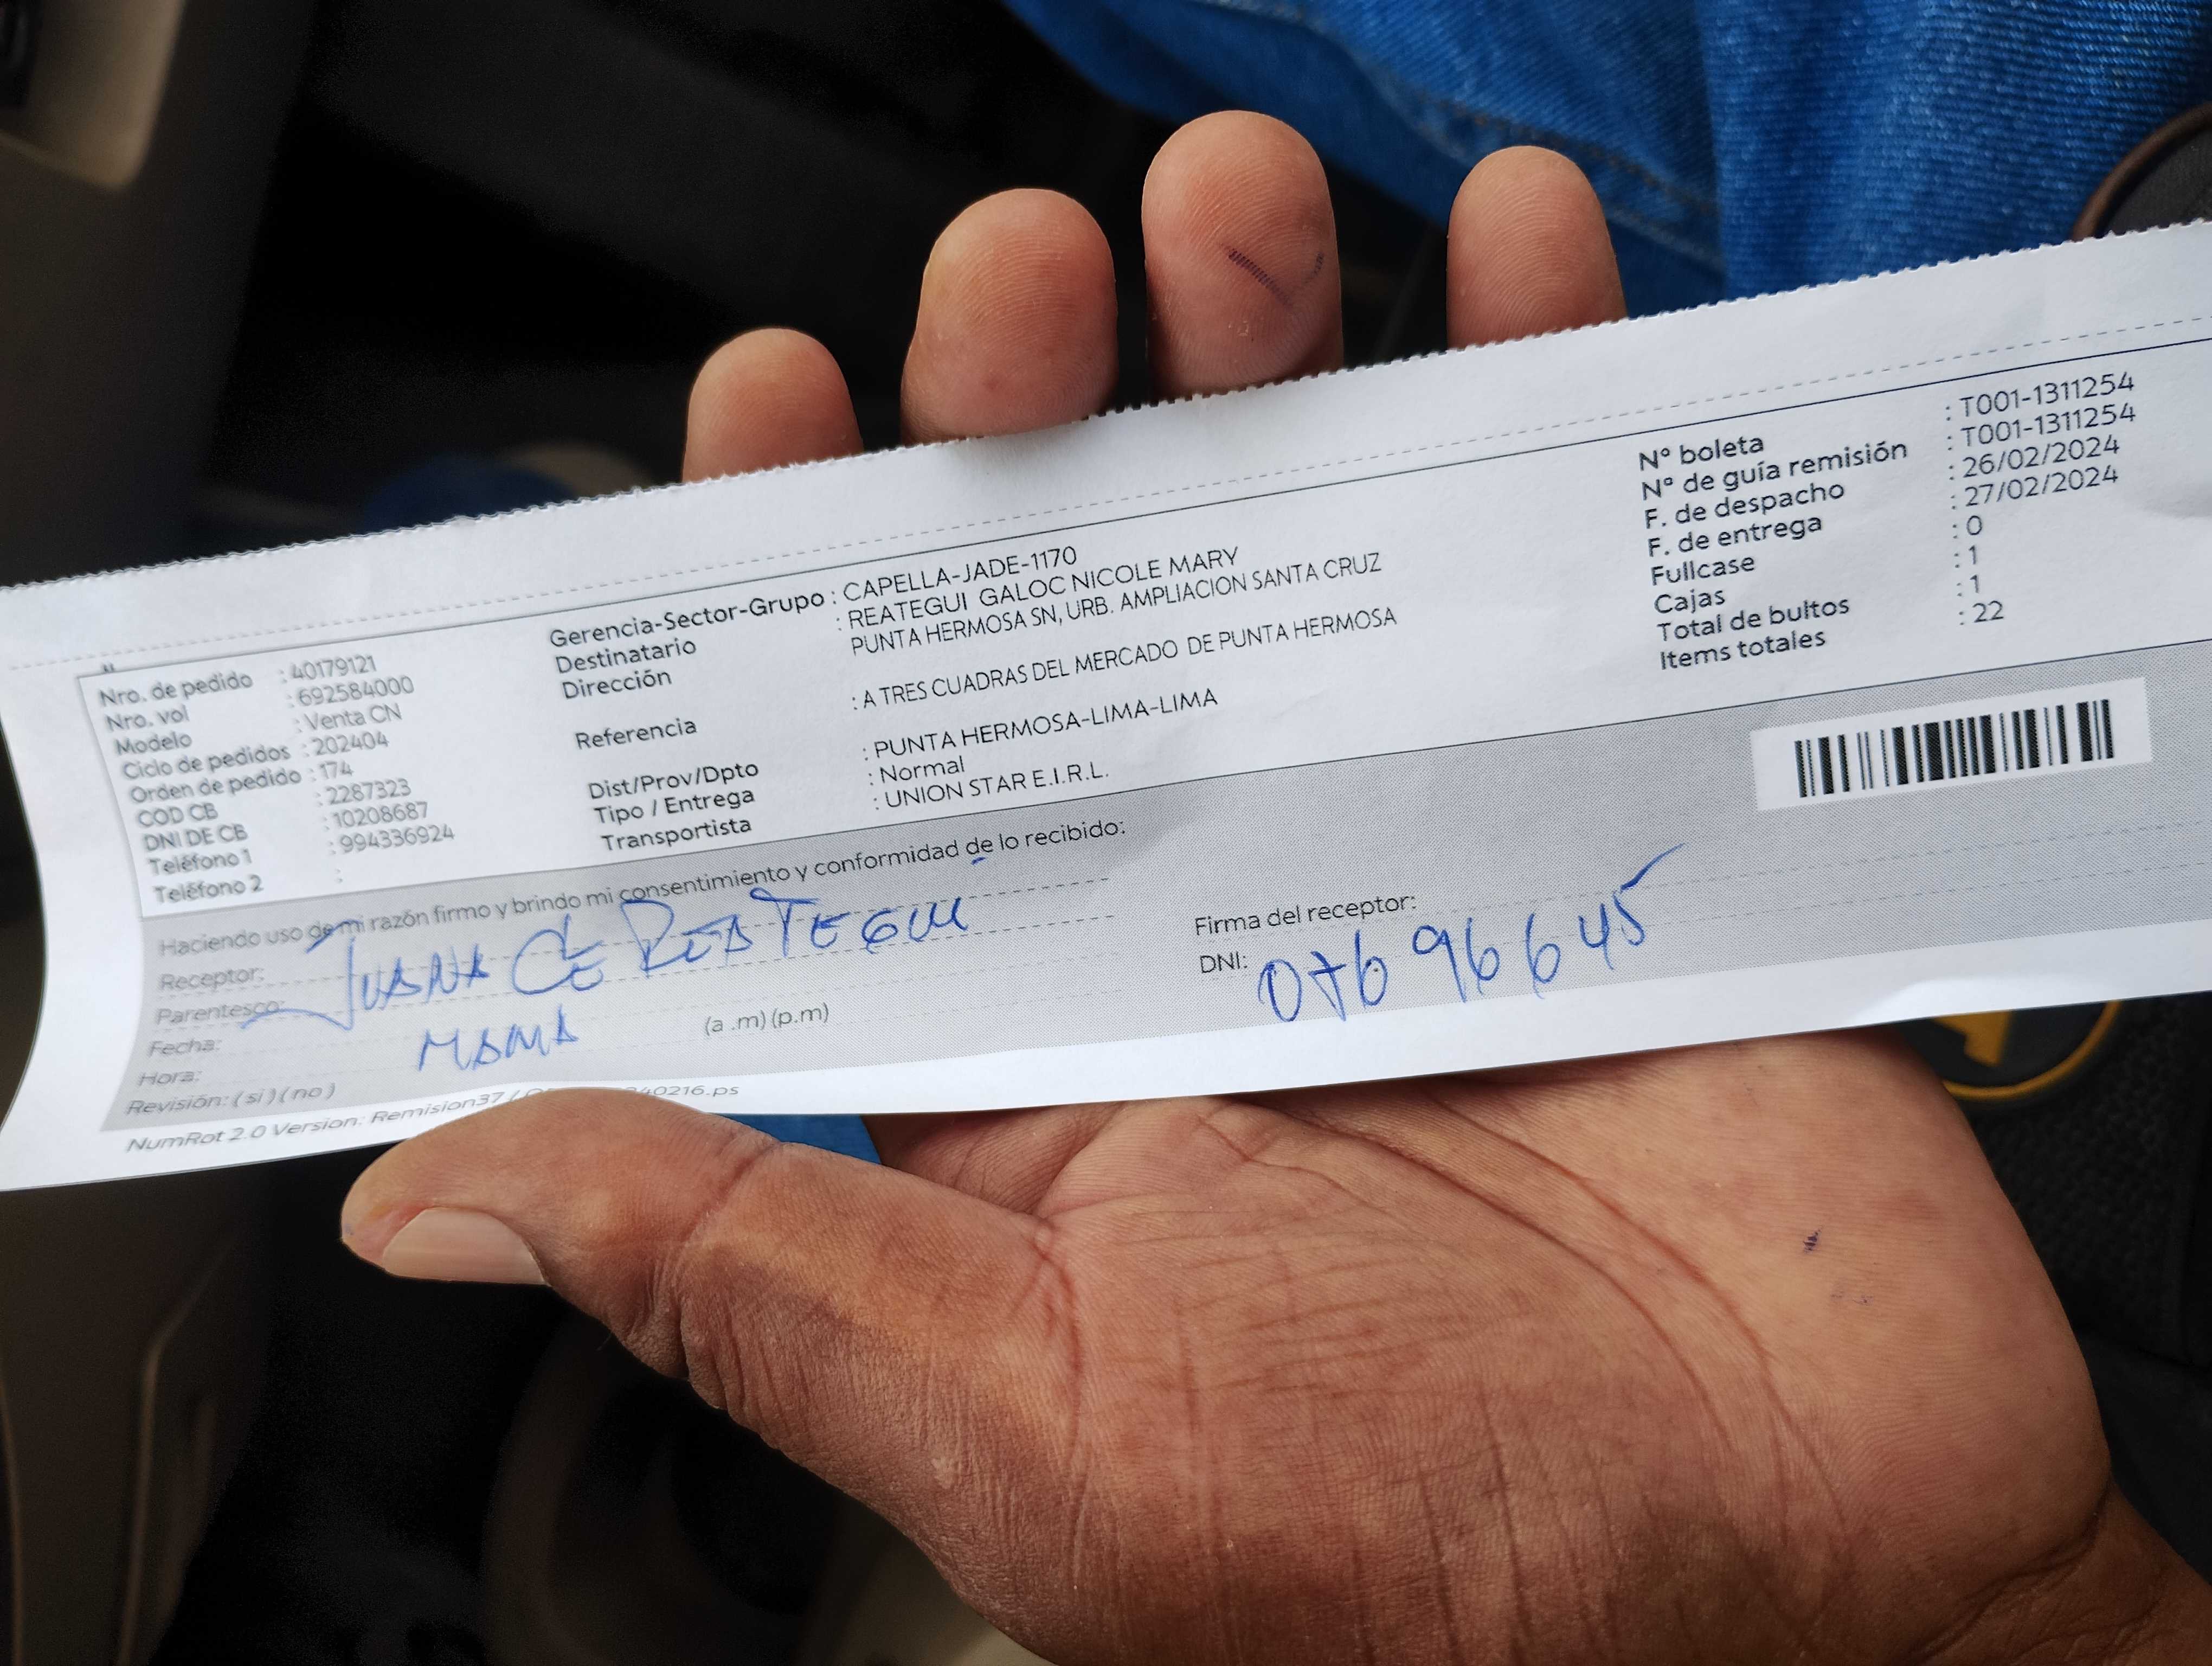 Nro. de pedido : 40179121
Nro. vol : 692584000
Modelo : Venta CN
Ciclo de pedidos : 202404
Orden de pedido : 174
COD CB : 2287323
DNI DE CB : 10208687
Teléfono 1 : 994336924
Teléfono 2 :
Gerencia-Sector-Grupo : CAPELLA-JADE-1170
Destinatario : REATEGUI GALOC NICOLE MARY
Dirección PUNTA HERMOSA SN, URB. AMPLIACION SANTA CRUZ
Referencia : A TRES CUADRAS DEL MERCADO DE PUNTA HERMOSA
Dist/Prov/Dpto : PUNTA HERMOSA-LIMA-LIMA
Tipo / Entrega : Normal
Transportista : UNION STAR E.I.R.L.
N° boleta : T001-1311254
N° de guía remisión : T001-1311254
F. de despacho : 26/02/2024
F. de entrega : 27/02/2024
Fullcase : 0
Cajas : 1
Total de bultos : 1
Items totales : 22
Haciendo uso de mi razón firmo y brindo mi consentimiento y conformidad de lo recibido:
Receptor: JUANA DE REATEGUI
Parentesco: MAMA
Fecha:
Hora: (a .m) (p.m)
Revisión: ( si ) ( no )
Firma del receptor:
DNI: 07696645
NumRot 2.0 Version: Remision37 / 40216.ps